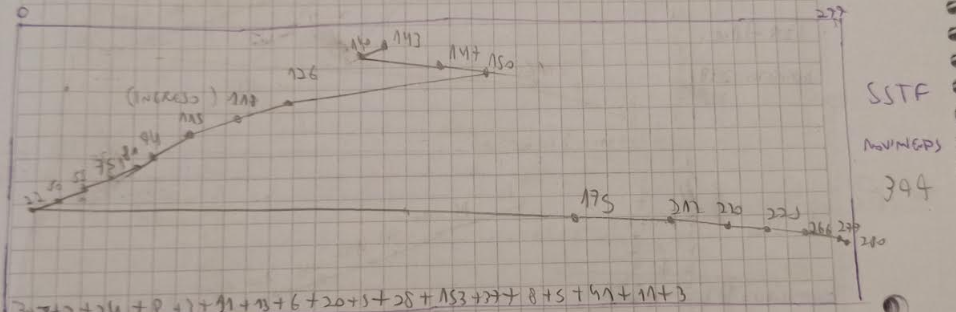 0 277
140 143
147 150
126
(INGRESO) 118
115
94
81
75
55
50
22
175 212 220 225 266 277 280
SSTF
MOVIMENTOS
344
3+7+3+24+8+3+21+13+6+20+5+28+153+37+8+5+41+11+3